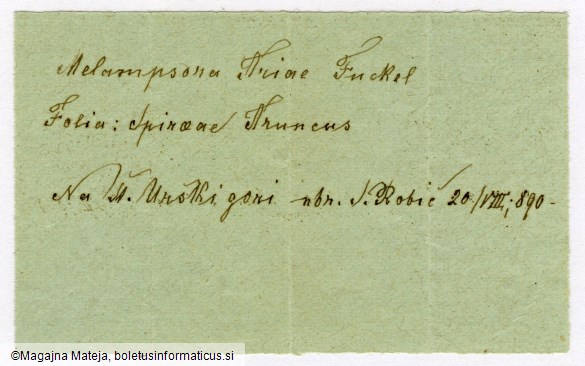 Melampsora Ariae Fuckel
Folia: Spiraeae Aruncus
Na Št. Urški gori nbr. S. Robič 20/VIII; 890-
©Magajna Mateja, boletusinformaticus.si